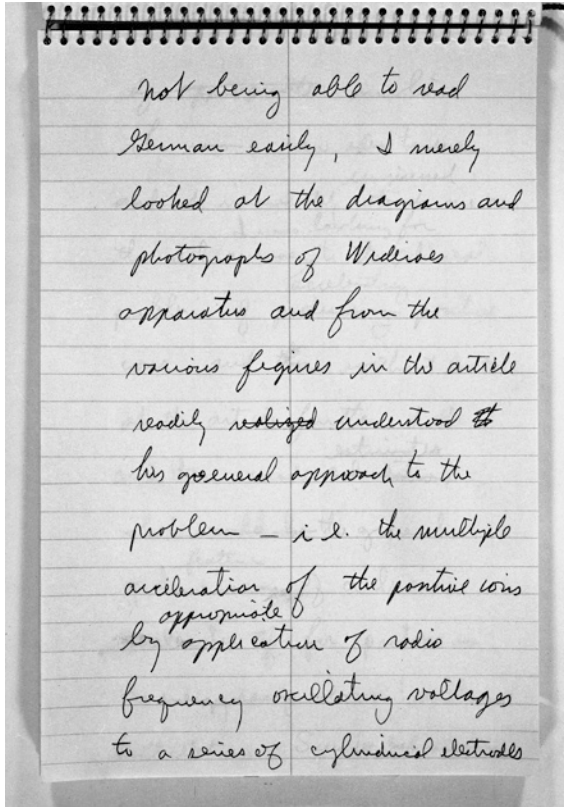 not being able to read
German easily, I merely
looked at the diagrams and
photographs of Wideroes
apparatus and from the
various figures in the article
readily realized understood it
his general approach to the
problem – i.e. the multiple
acceleration of the positive ions
appropriate
by application of radio
frequency oscillating voltages
to a series of cylindrical electrodes